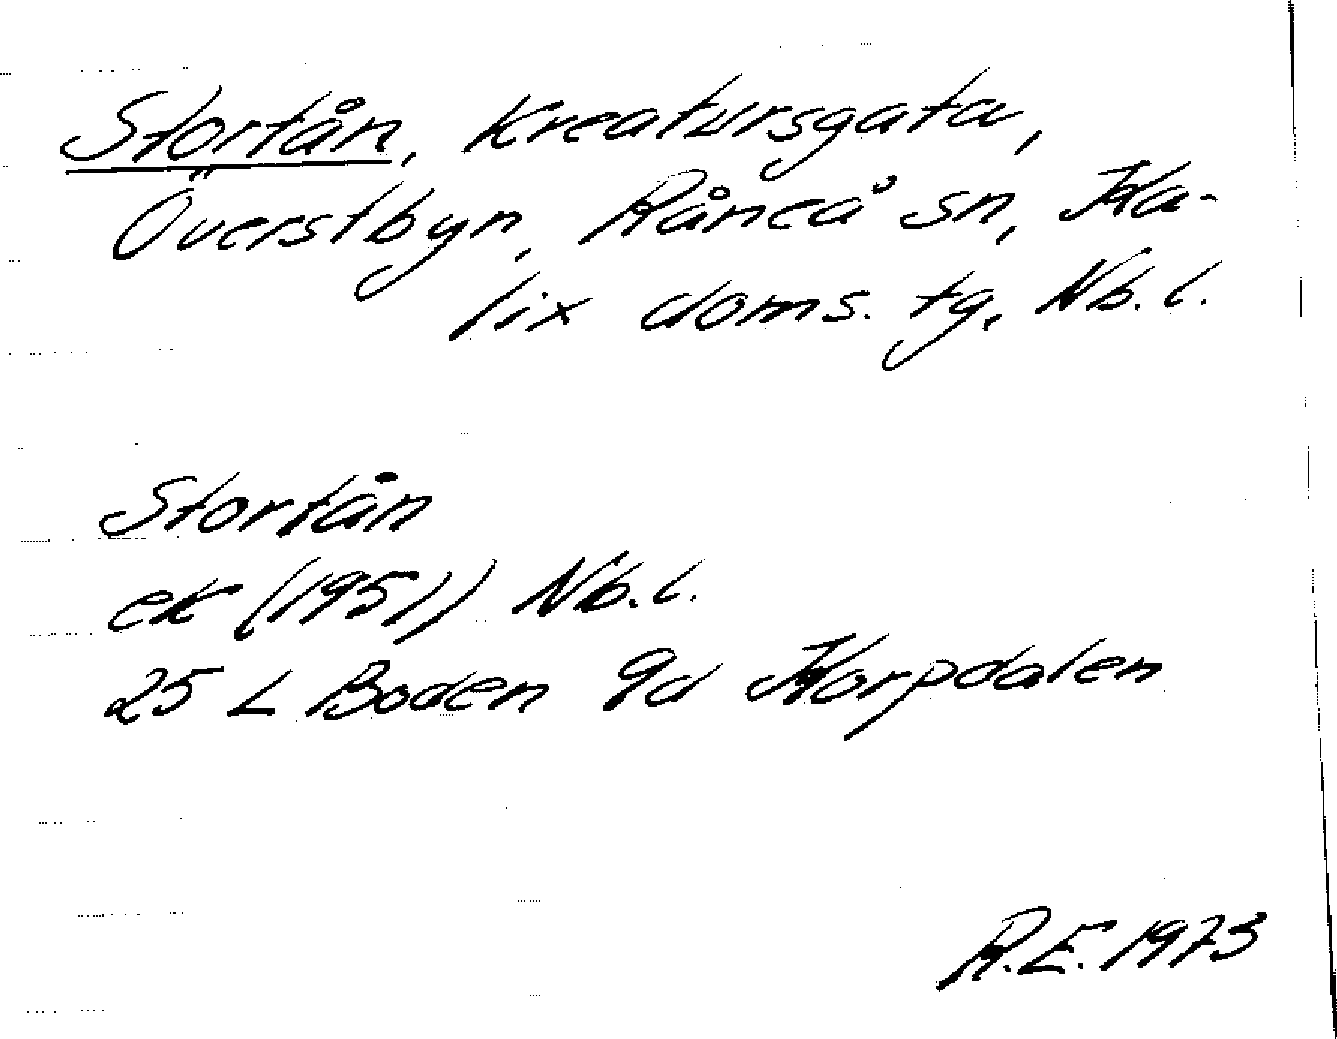 Stortån, kreatursgata,
Överstbyn, Råneå sn, Ka-
lix doms. tg, Nb. l.
Stortån
ek (1951) Nb. l.
25 L Boden 9d Korpdalen
R.E. 1973